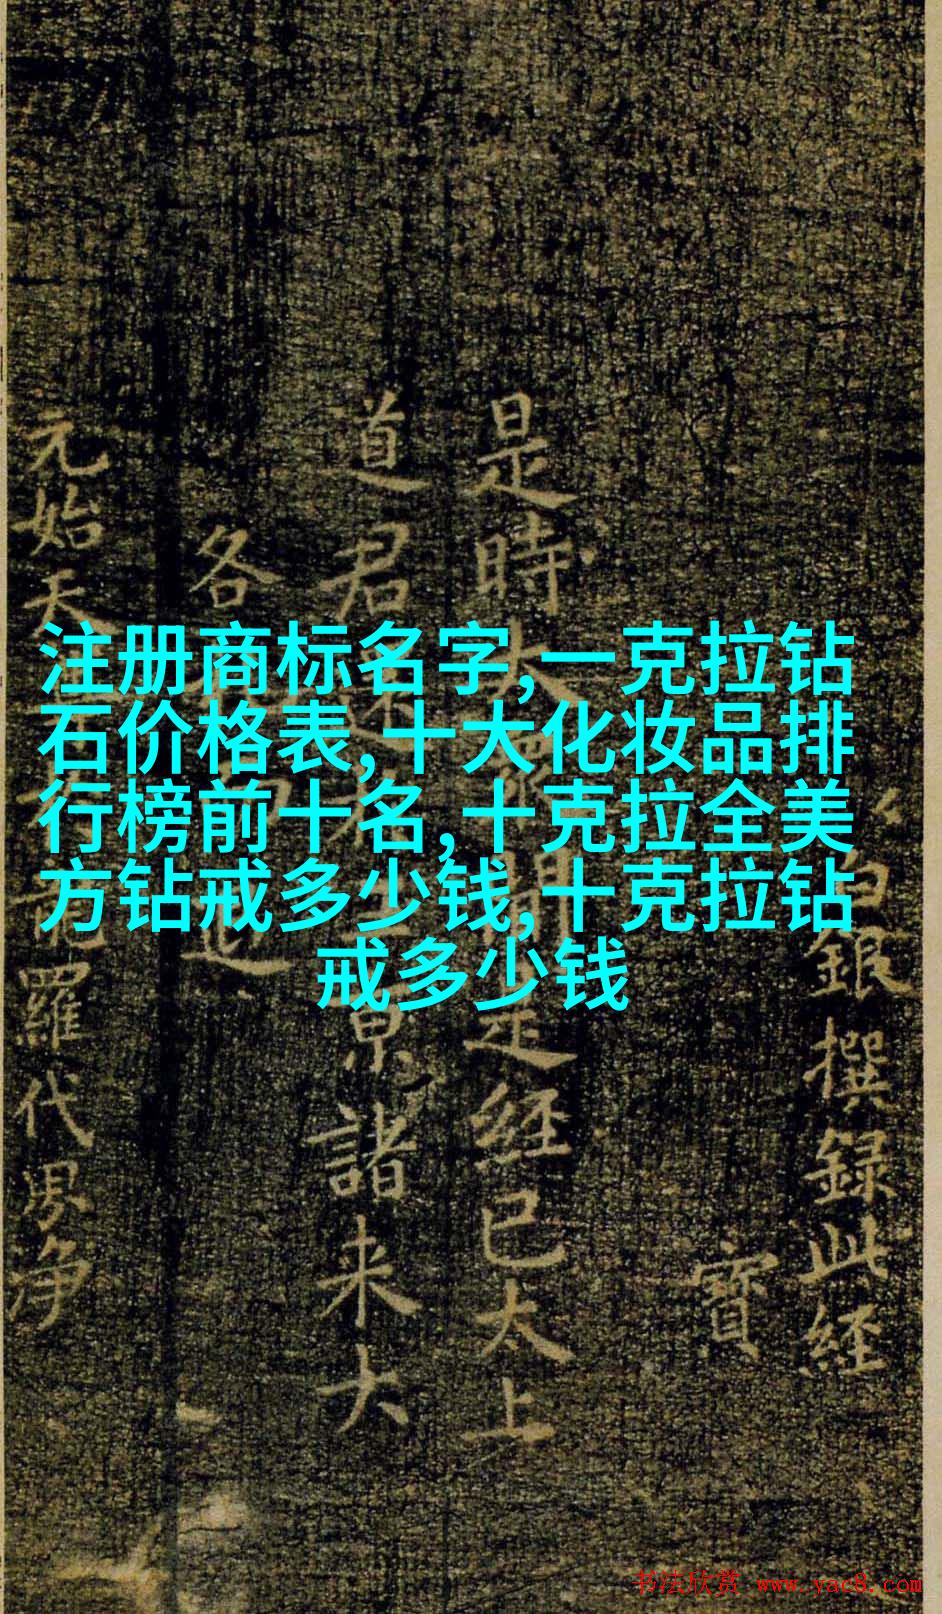 注册商标名字,一克拉钻
石价格表,十大化妆品排
行榜前十名,十克拉全美
方钻戒多少钱,十克拉钻
戒多少钱
銀撰録此經
寶
是時太
是經已太上
道君
京諸来大
各
元始天
羅代界净
书法欣赏 www.yac8.com